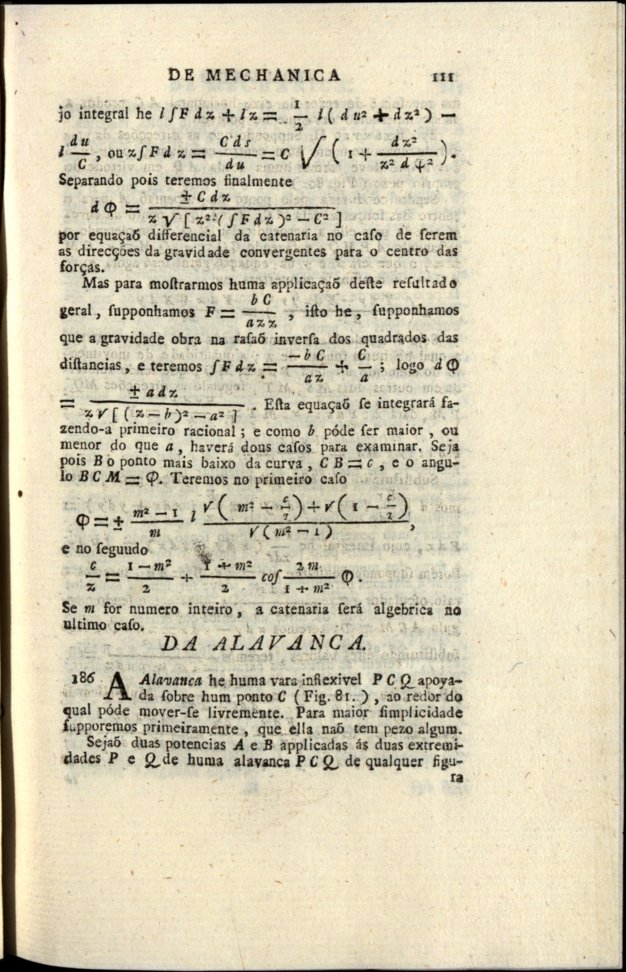 DE MECHANICA 111
jo integral he l ∫F dz + lz = 1/2 l ( du² + dz² ) —
l du/C , ou z∫F d z = C ds/du = C √ ( 1 + dz²/z² d φ² ).
Separando pois teremos finalmente
d Φ = ± C dz / z √ [ z² ( ∫F dz )² — C² ]
por equaçaõ differencial da catenaria no caſo de ſerem
as direcções da gravidade convergentes para o centro das
forças.
Mas para moſtrarmos huma applicaçaõ deſte reſultado
geral, ſupponhamos F = b C / a z z , iſto he, ſupponhamos
que a gravidade obra na raſaõ inverſa dos quadrados das
diſtancias, e teremos ∫F d z = — b C / a z + C / a ; logo d Φ
= ± a d z / z √ [ ( z — b )² — a² ] . Eſta equaçaõ ſe integrará fa-
zendo-a primeiro racional ; e como b póde ſer maior , ou
menor do que a , haverá dous caſos para examinar. Seja
pois B o ponto mais baixo da curva , C B = c , e o angu-
lo B C M = Φ. Teremos no primeiro caſo
Φ = ± m² — 1 / m l √ ( m² — c/z ) + √ ( 1 — c/z ) / √ ( m² — 1 ) ,
e no ſeguudo
c/z = 1 — m² / 2 + 1 + m² / 2 coſ 2 m / 1 + m² Φ .
Se m for numero inteiro , a catenaria ſerá algebrica no
ultimo caſo.
DA ALAVANCA.
186 A Alavanca he huma vara inflexivel P C Q apoya-
da ſobre hum ponto C ( Fig. 81. ) , ao redor do
qual póde mover-ſe livremente. Para maior ſimplicidade
ſupporemos primeiramente , que ella naõ tem pezo algum.
Sejaõ duas potencias A e B applicadas ás duas extremi-
dades P e Q de huma alavanca P C Q de qualquer figu-
ra